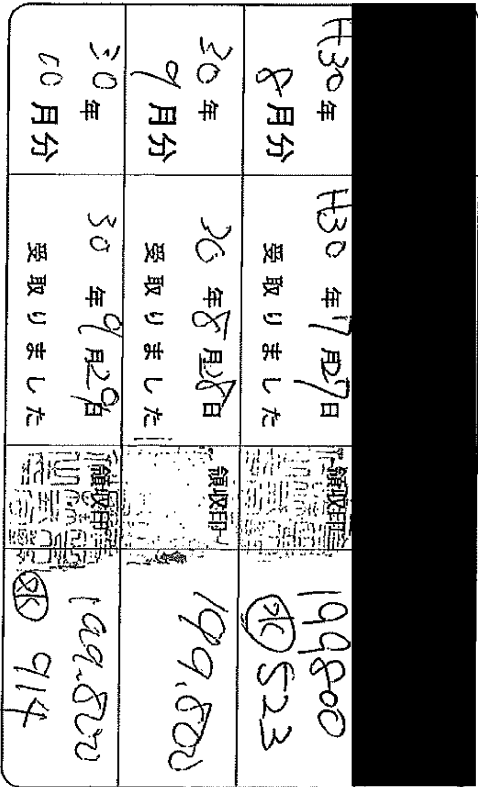 H30年
8月分
H30年7月27日
受取りました
領収印
199800
水 523
30年
9月分
30年8月28日
受取りました
領収印
199,800
30年
10月分
30年9月29日
受取りました
領収印
199,800
水 914